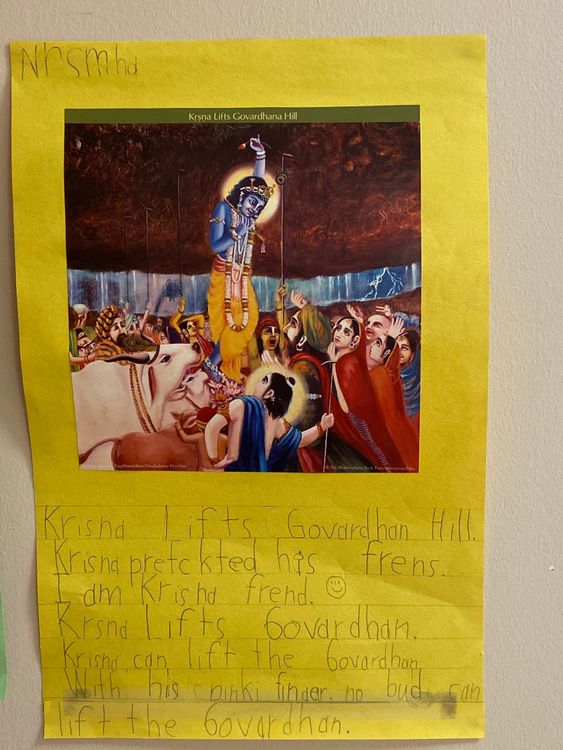 Nrsmhd
Kṛṣṇa Lifts Govardhana Hill
Krisna Lifts Govardhan Hill.
Krisna pretckted his frens.
I am Krisha frend.
Krsna Lifts Govardhan.
Krisna can lift the Govardhan
With his pinki finder. no budi can
lift the Govardhan.